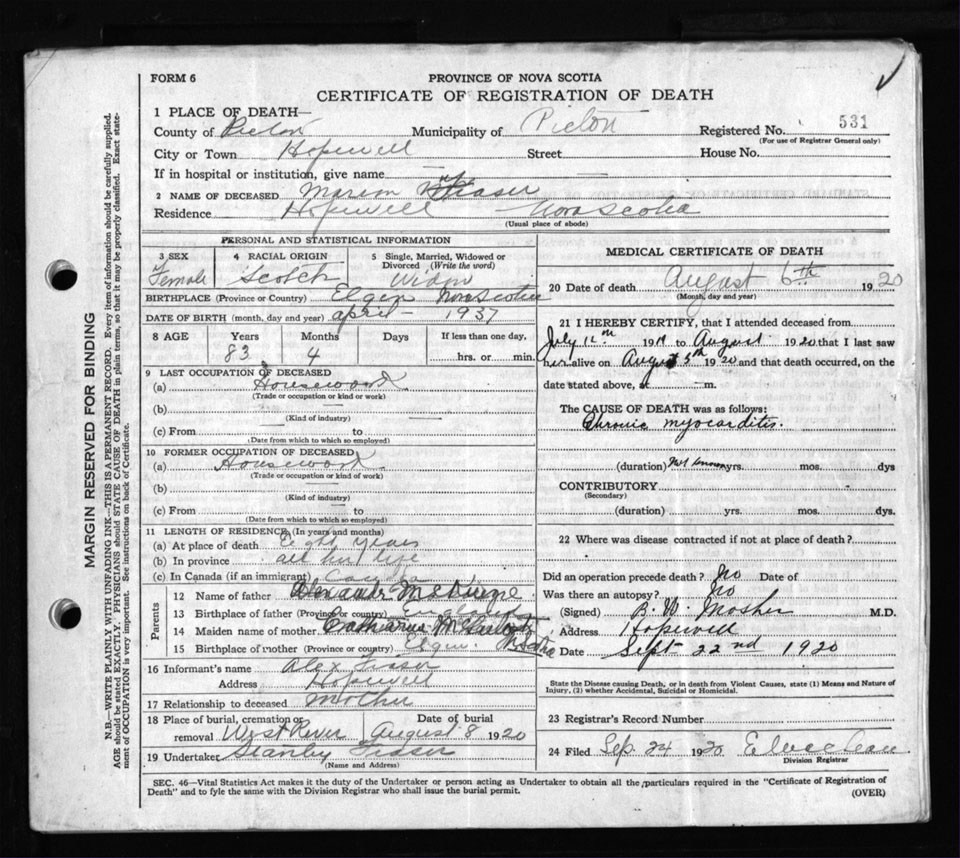 FORM 6
PROVINCE OF NOVA SCOTIA
CERTIFICATE OF REGISTRATION OF DEATH
1 PLACE OF DEATH—
County of Pictou Municipality of Pictou Registered No. 531
(For use of Registrar General only)
City or Town Hopewell Street House No.
If in hospital or institution, give name —
2 NAME OF DECEASED Marion Fraser
Residence Hopewell Nova Scotia
(Usual place of abode)
PERSONAL AND STATISTICAL INFORMATION
3 SEX Female
4 RACIAL ORIGIN Scotch
5 Single, Married, Widowed or Divorced (Write the word) Widow
BIRTHPLACE (Province or Country) Elgin Nova Scotia
DATE OF BIRTH (month, day and year) April – 1937
8 AGE Years 83 Months 4 Days If less than one day, hrs. or min.
9 LAST OCCUPATION OF DECEASED
(a) Housework
(Trade or occupation or kind or work)
(b)
(Kind of industry)
(c) From to
(Date from which to which so employed)
10 FORMER OCCUPATION OF DECEASED
(a) Housework
(Trade or occupation or kind of work)
(b)
(Kind of industry)
(c) From to
(Date from which to which so employed)
11 LENGTH OF RESIDENCE (In years and months)
(a) At place of death Eight years
(b) In province all her life
(c) In Canada (if an immigrant)
Parents
12 Name of father Alexander
13 Birthplace of father (Province or country)
14 Maiden name of mother Catharine
15 Birthplace of mother (Province or country) Elgin N Scotia
16 Informant's name Alex Fraser
Address Hopewell
17 Relationship to deceased Mother
18 Place of burial, cremation or removal West River Date of burial August 8 1920
19 Undertaker Stanly Fraser
(Name and Address)
MEDICAL CERTIFICATE OF DEATH
20 Date of death August 6th 1920
(Month, day and year)
21 I HEREBY CERTIFY, that I attended deceased from
July 12th 1919 to August 1920 that I last saw
her alive on August 5th 1920 and that death occurred, on the
date stated above, at — m.
The CAUSE OF DEATH was as follows:
Chronic myocarditis.
(duration) Not known yrs. mos. dys
CONTRIBUTORY
(Secondary)
(duration) yrs. mos. dys
22 Where was disease contracted if not at place of death?
Did an operation precede death? No Date of
Was there an autopsy? No
(Signed) B. W. Mosher M.D.
Address Hopewell
Date Sept 22nd 1920
State the Disease causing Death, or in death from Violent Causes, state (1) Means and Nature of
Injury, (2) whether Accidental, Suicidal or Homicidal.
23 Registrar's Record Number
24 Filed Sep. 24 1920
Division Registrar
SEC. 46—Vital Statistics Act makes it the duty of the Undertaker or person acting as Undertaker to obtain all the particulars required in the "Certificate of Registration of
Death" and to fyle the same with the Division Registrar who shall issue the burial permit.
(OVER)
MARGIN RESERVED FOR BINDING
N.B.—WRITE PLAINLY WITH UNFADING INK—THIS IS A PERMANENT RECORD. Every item of information should be carefully supplied.
AGE should be stated EXACTLY. PHYSICIANS should STATE CAUSE OF DEATH in plain terms, so that it may be properly classified. Exact state-
ment of OCCUPATION is very important. See instructions on back of Certificate.